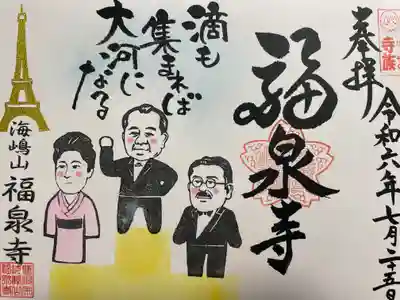 奉拝
令和六年七月二十五日
福泉寺
滴も
集まれば
大河になる。
海嶋山 福泉寺